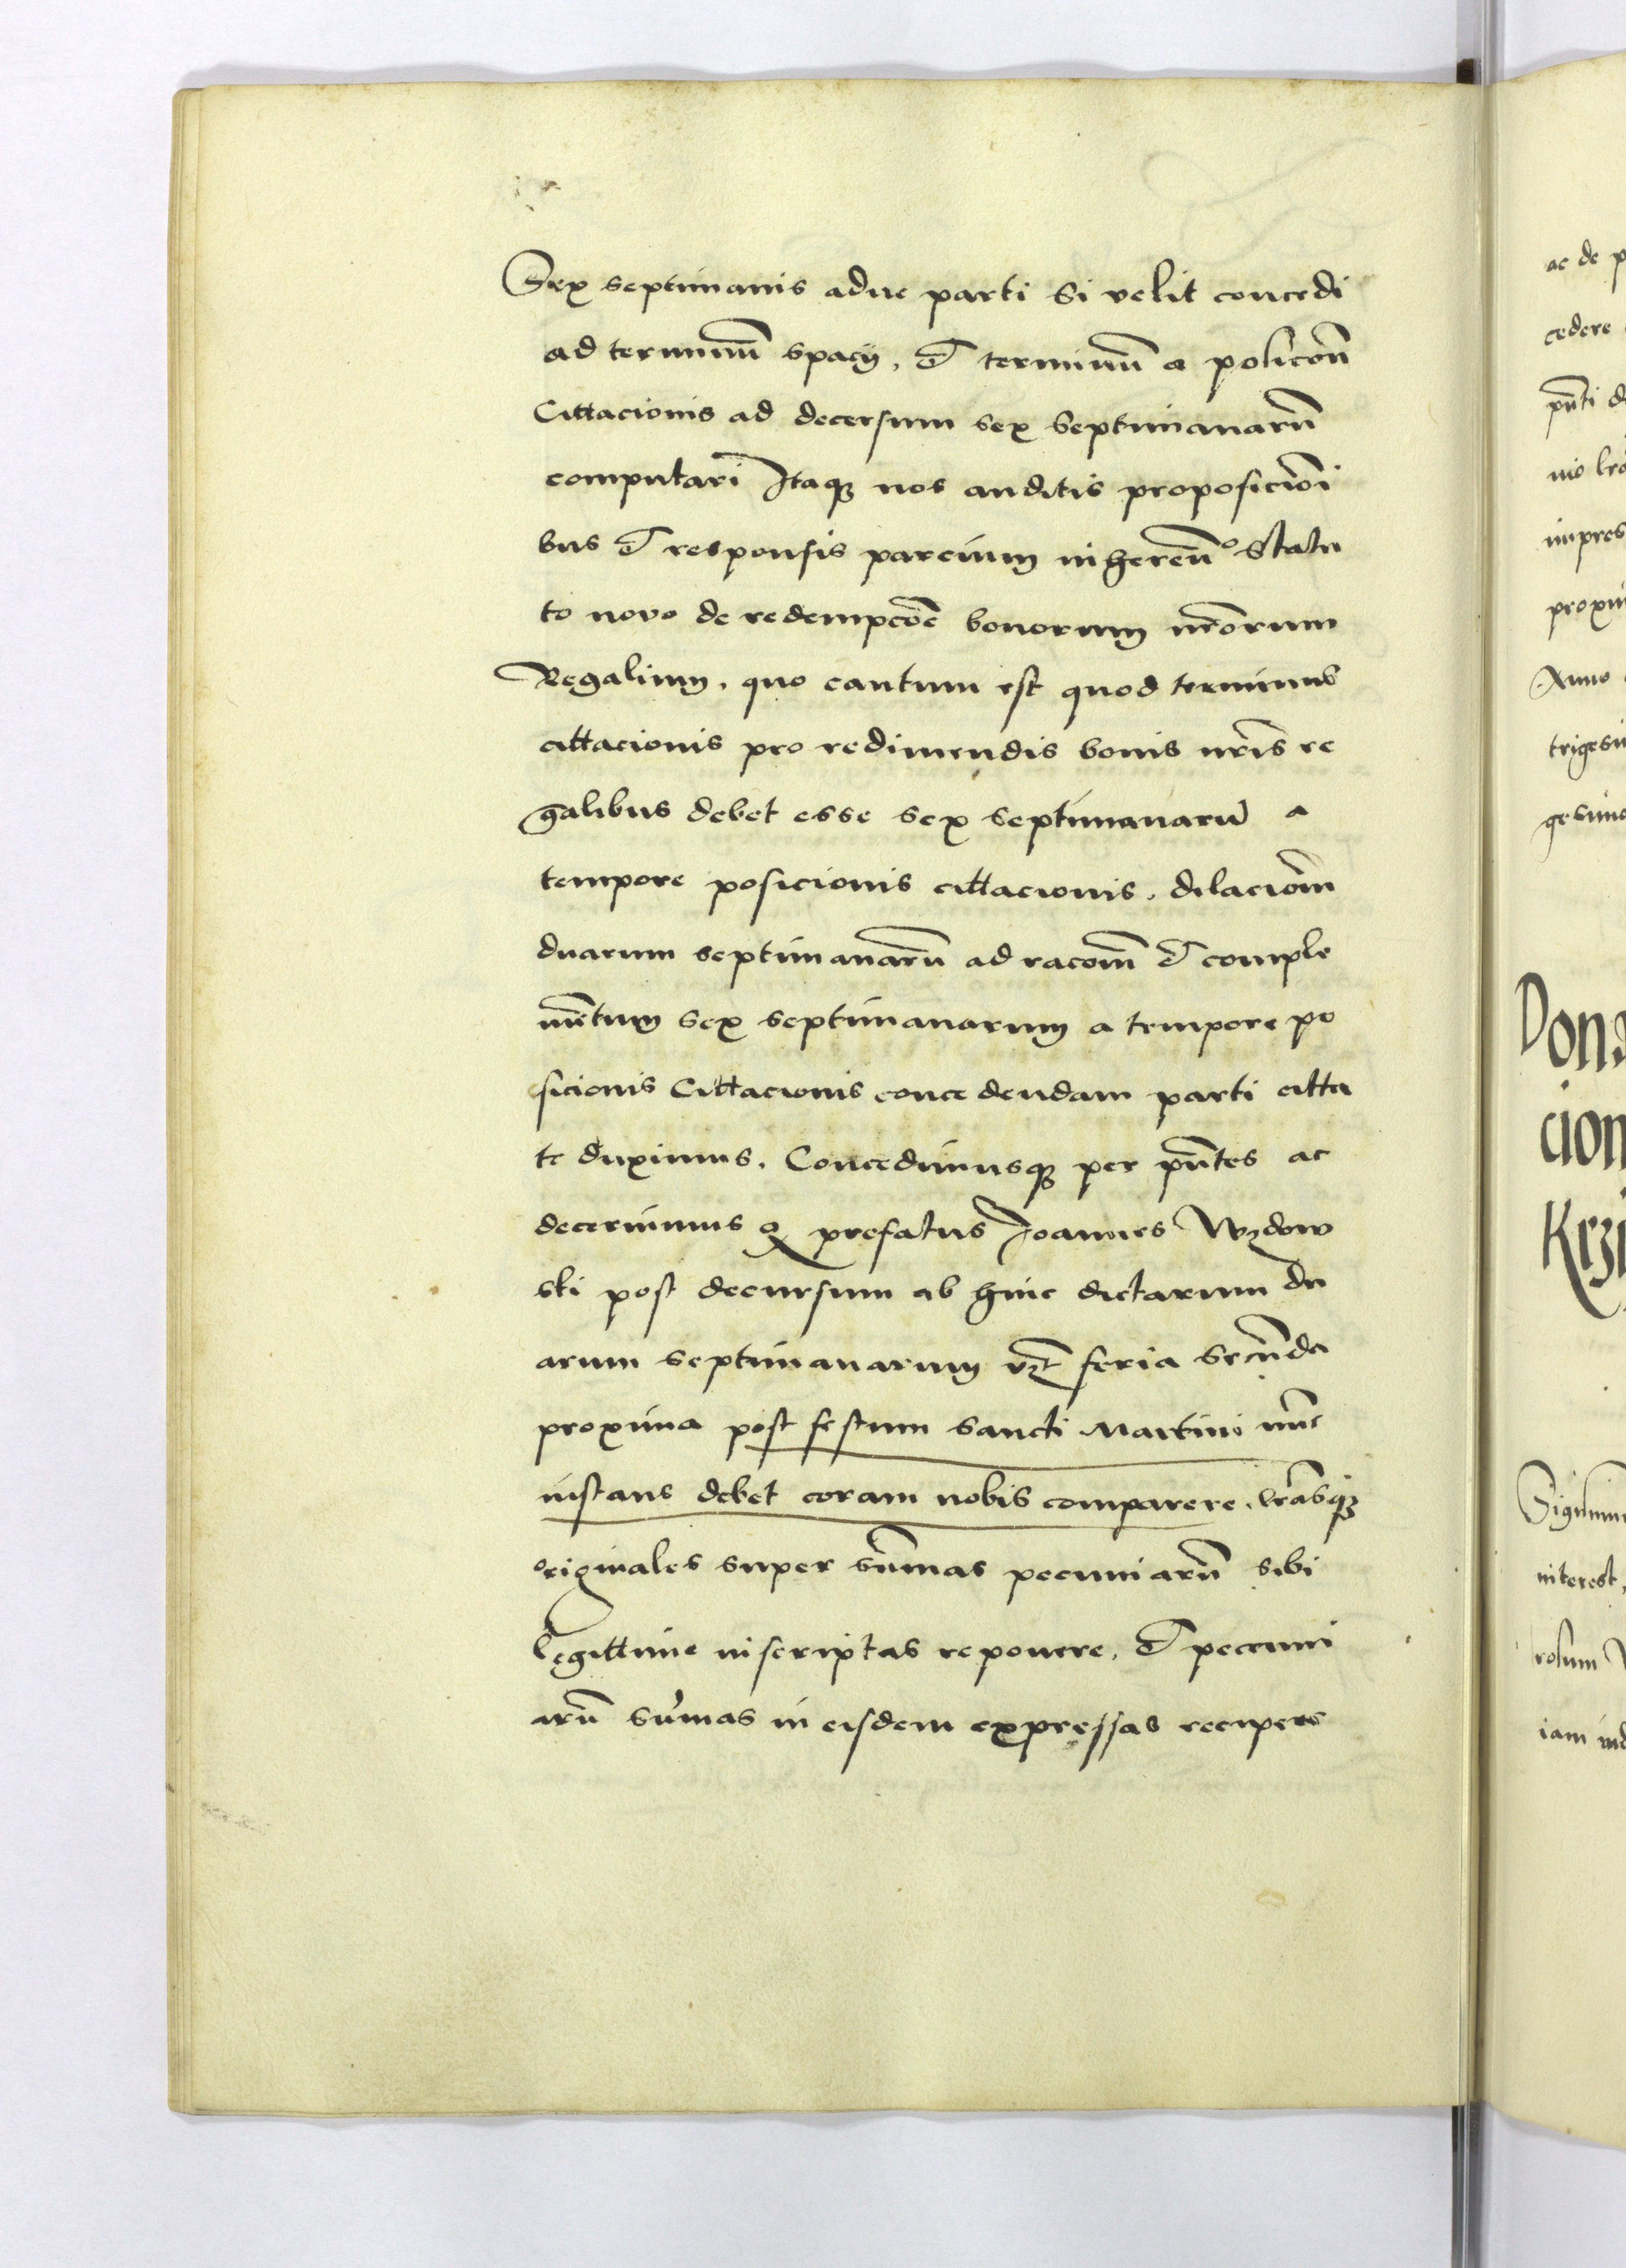 Sex septimanis aduc parti si velit concedi
ad terminũ spacij, et terminũ a posicoñ
Cittacionis ad decersum sex septimanarũ
computari Itaqꝫ nos auditis proposicioni
bus et responsis parcium inhereñ Statu
to novo de redempcõe bonorum nrõrum
Regalium, quo cautum est quod terminus
cittacionis pro redimendis bonis nrĩs re
galibus debet esse sex septimanarũ a
tempore posicionis cittacionis, dilacioñm
duarum septimanarũ ad racoñm et comple
mẽtum sex septimanarum a tempore po
sicionis Cittacionis concedendam parti citta
te duximus, Concedimusqꝫ per pñtes ac
decernimus qꝫ prefatus Joannes Wzdow
ski post decursum ab hinc dictarum du
arum septimanarum vꝫt feria secũnda
proxima post festum sancti Martini nũc
instans debet coram nobis comparere, lrãsqꝫ
originales super sũmmas pecuniarũ sibi
legittime inscriptas reponere, et pecuni
arũ sũmas in eisdem expressas recipere
ac de p
cedere
pñti d
nio lrã
impres
proxim
Anno
trigesi
gesimo
Dona
cion
Krzi
Signum
interest,
rolum
iam ind